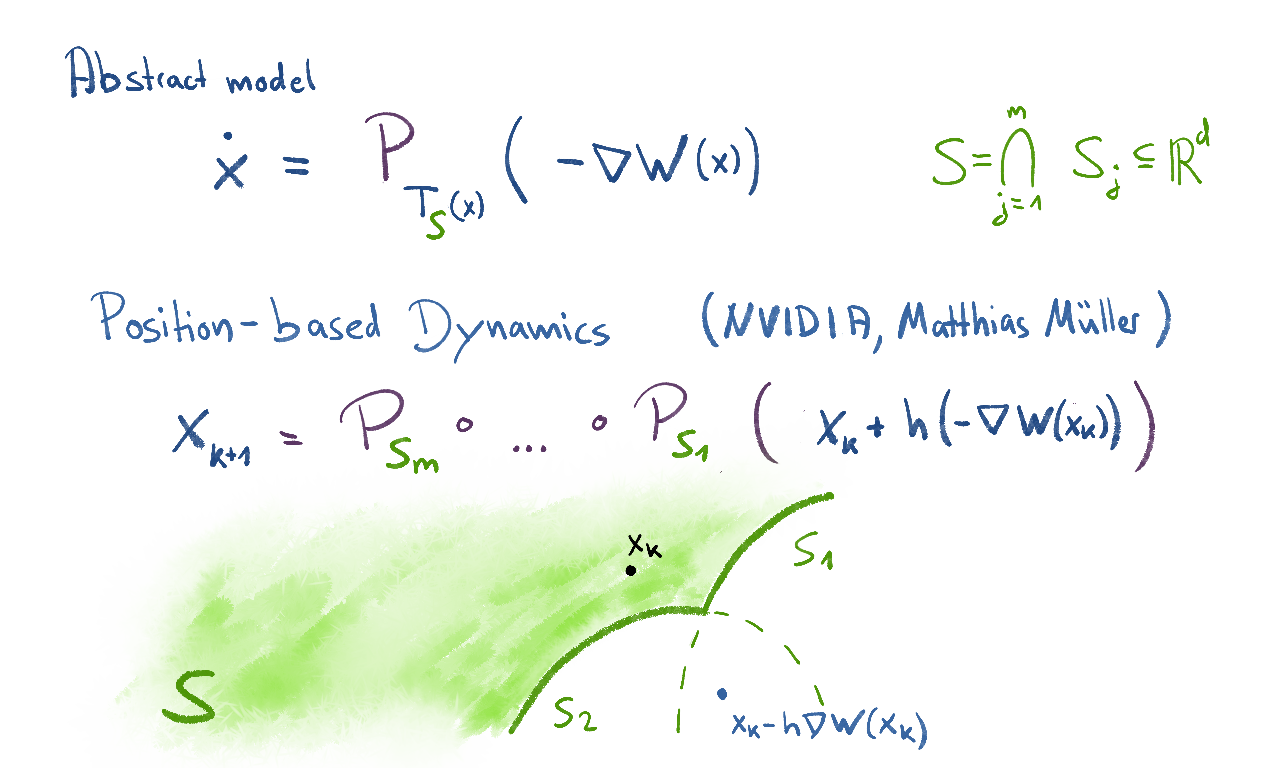 Abstract model
ẋ = P_{T_S(x)} ( −∇W(x) )
S = ⋂_{j=1}^{m} S_j ⊆ ℝ^d
Position-based Dynamics (NVIDIA, Matthias Müller)
x_{k+1} = P_{S_m} ∘ ... ∘ P_{S_1} ( x_k + h(−∇W(x_k)) )
x_k
S_1
S
S_2
x_k − h∇W(x_k)